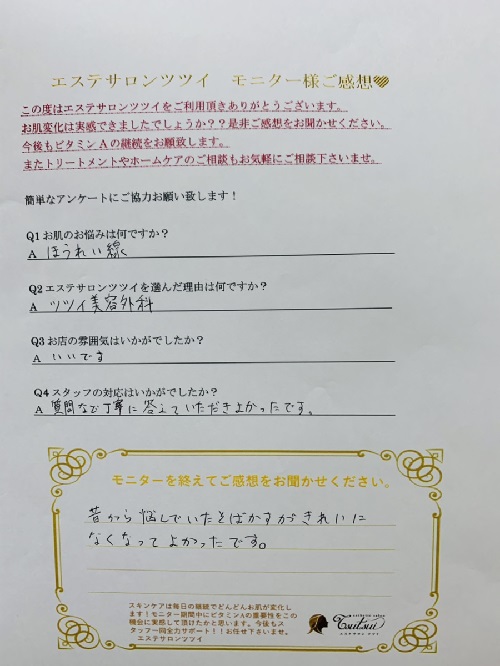 エステサロンツツイ　モニター様ご感想
この度はエステサロンツツイをご利用頂きありがとうございます。
お肌変化は実感できましたでしょうか??是非ご感想をお聞かせください。
今後もビタミンAの継続をお願致します。
またトリートメントやホームケアのご相談もお気軽にご相談下さいませ。
簡単なアンケートにご協力お願い致します！
Q1 お肌のお悩みは何ですか？
A ほうれい線
Q2 エステサロンツツイを選んだ理由は何ですか？
A ツツイ美容外科
Q3 お店の雰囲気はいかがでしたか？
A いいです
Q4 スタッフの対応はいかがでしたか？
A 質問など丁寧に答えていただきよかったです。
モニターを終えてご感想をお聞かせください。
昔から悩んでいたそばかすがきれいに
なくなってよかったです。
スキンケアは毎日の継続でどんどんお肌が変化し
ます！モニター期間中にビタミンAの重要性をこの
機会に実感して頂けたかと思います。今後もス
タッフ一同全力サポート！！お任せ下さいませ。
エステサロンツツイ
esthetic salon
Tsutsui
エステサロン ツツイ